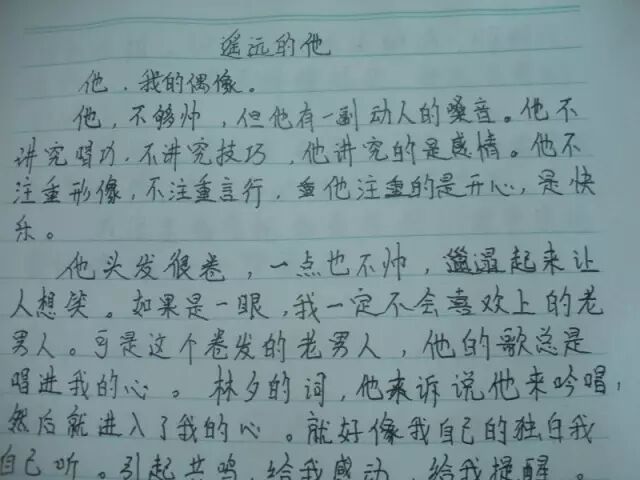 遥远的他
他，我的偶像。
他，不够帅，但他有一副动人的嗓音。他不
讲究唱功，不讲究技巧，他讲究的是感情。他不
注重形像，不注重言行，他注重的是开心，是快
乐。
他头发很卷，一点也不帅，邋遢起来让
人想笑。如果是一眼，我一定不会喜欢上的老
男人。可是这个卷发的老男人，他的歌总是
唱进我的心。林夕的词，他来诉说他来吟唱，
然后就进入了我的心。就好像我自己的独白我
自己听。引起共鸣，给我感动，给我提醒。